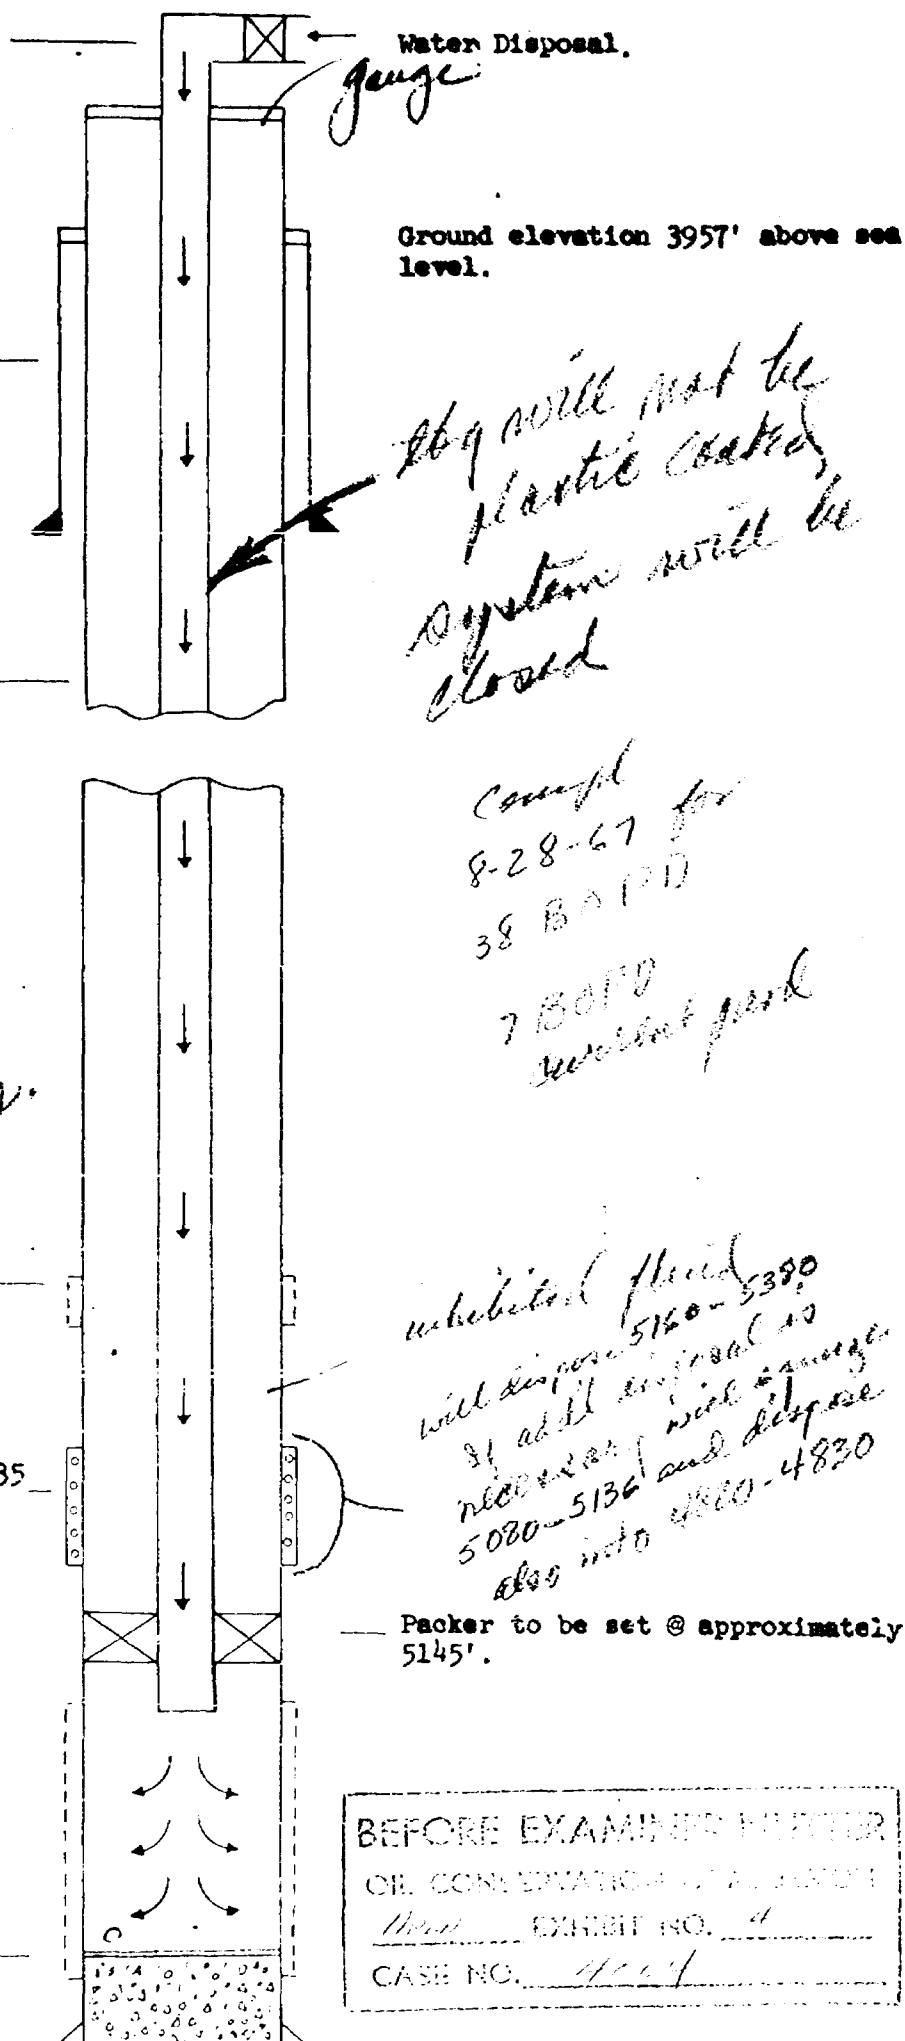 Water Disposal.
gauge
Ground elevation 3957' above sea
level.
tbg will not be
plastic coated,
system will be
closed
Compl
8-28-67 for
38 BOPD
7 BOPD
current prod
inhibited fluid
will dispose 5160-5380
If addl disposal is
necessary, will squeeze
5080-5136 and dispose
also into 4820-4830
35
Packer to be set @ approximately
5145'.
BEFORE EXAMINER NUTTER
OIL CONSERVATION
EXHIBIT NO. 4
CASE NO.